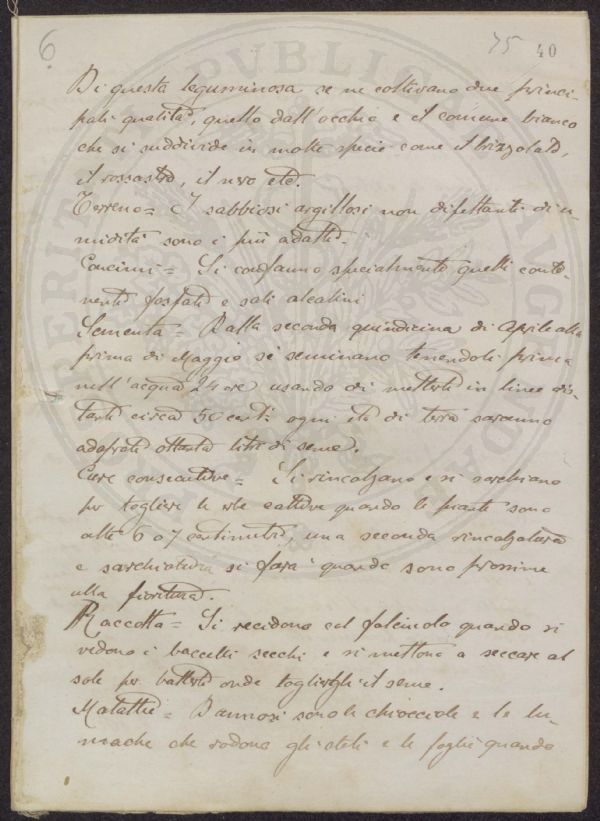 6
75 40
Di questa leguminosa se ne coltivano due princi-
pali qualità, quello dall'occhio e il comune bianco
che si suddivide in molte specie come il brizzolato,
il rossastro, il nero etc.
Terreno = I sabbiosi argillosi non difettanti di u-
midità sono i più adatti.
Concimi = Si confanno specialmente quelli conte-
nenti fosfati e sali alcalini
Sementa = Dalla seconda quindicina di Aprile alla
prima di Maggio si seminano tenendoli prima
nell'acqua 24 ore usando di metterli in linee dis-
tanti circa 50 centi: ogni età di terra saranno
adoprati ottanta litri di seme.
Cure consecutive = Si rincalzano e si sarchiano
per togliere le erbe cattive quando le piante sono
alte 6 o 7 centimetri, una seconda rincalzatura
e sarchiatura si farà quando sono prossime
alla fioritura.
Raccolta = Si recidono col falcinolo quando si
vedono i baccelli secchi e si mettono a seccare al
sole per batterli onde toglierghi il seme.
Malattie = Dannosi sono le chiocciole e le lu-
mache che rodono gli steli e le foglie quando
PUBLICA